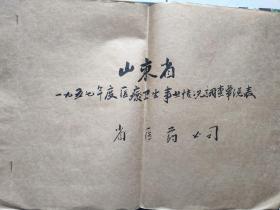 山東省
一九五七年度医療卫生事业情况調查彙总表
省医药公司